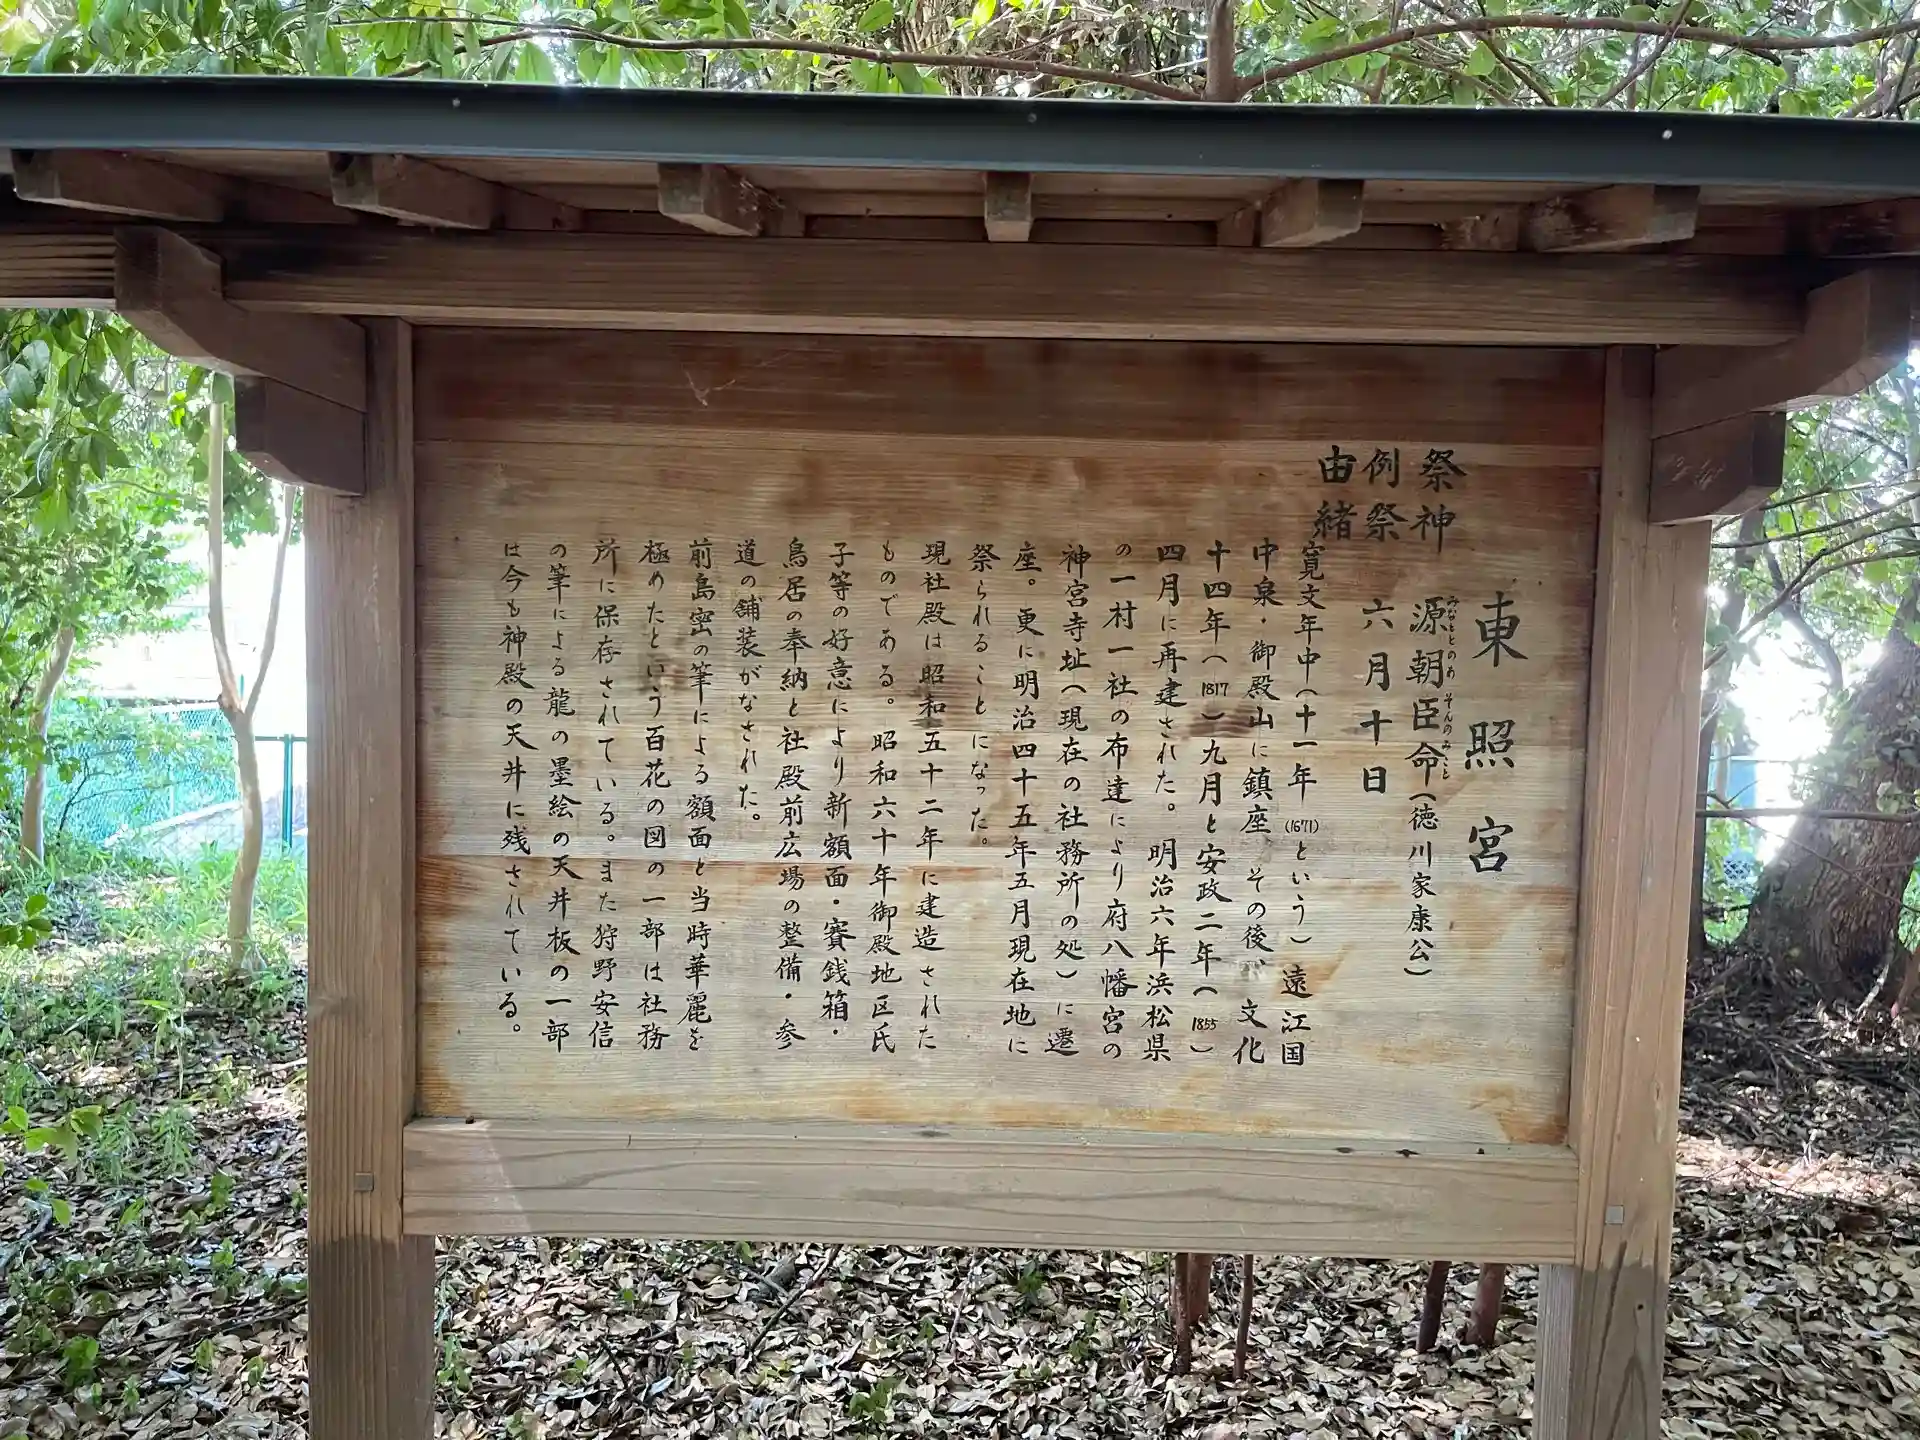 東照宮
祭神 源朝臣命（徳川家康公）
みなもとのあそんのみこと
例祭 六月十日
由緒
寛文年中（十一年（1671）という）遠江国
中泉・御殿山に鎮座、その後、文化
十四年（1817）九月と安政二年（1855）
四月に再建された。明治六年浜松県
の一村一社の布達により府八幡宮の
神宮寺址（現在の社務所の処）に遷
座。更に明治四十五年五月現在地に
祭られることになった。
現社殿は昭和五十二年に建造された
ものである。昭和六十年御殿地区氏
子等の好意により新額面・賽銭箱・
鳥居の奉納と社殿前広場の整備・参
道の舗装がなされた。
前島密の筆による額面と当時華麗を
極めたという百花の図の一部は社務
所に保存されている。また狩野安信
の筆による龍の墨絵の天井板の一部
は今も神殿の天井に残されている。